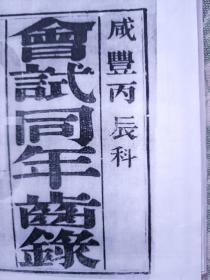 咸豐丙辰科
會試同年齒錄